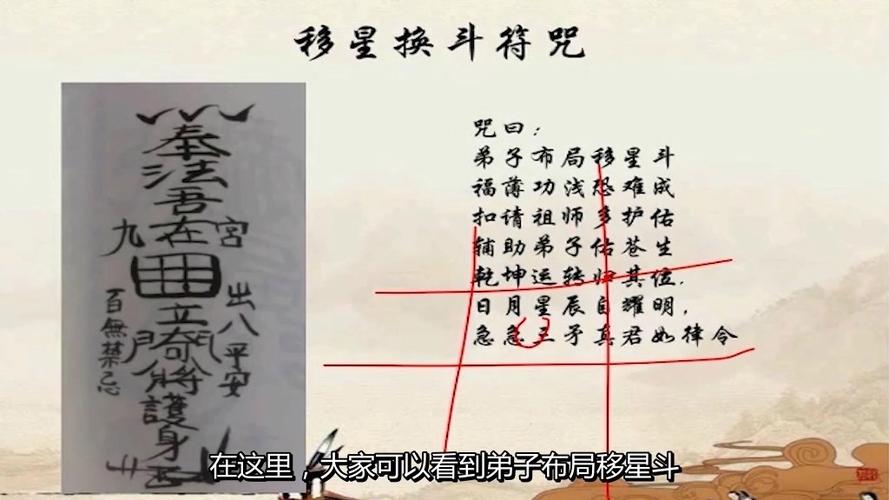 移星换斗符咒
奉
法
吾
九在宫
立
出八平安
百無禁忌
護
身
咒曰：
弟子布局移星斗
福薄功浅恐难成
扣请祖师多护佑
辅助弟子佑苍生
乾坤运转归其位.
日月星辰自耀明,
急急三矛真君如律令
在这里，大家可以看到弟子布局移星斗